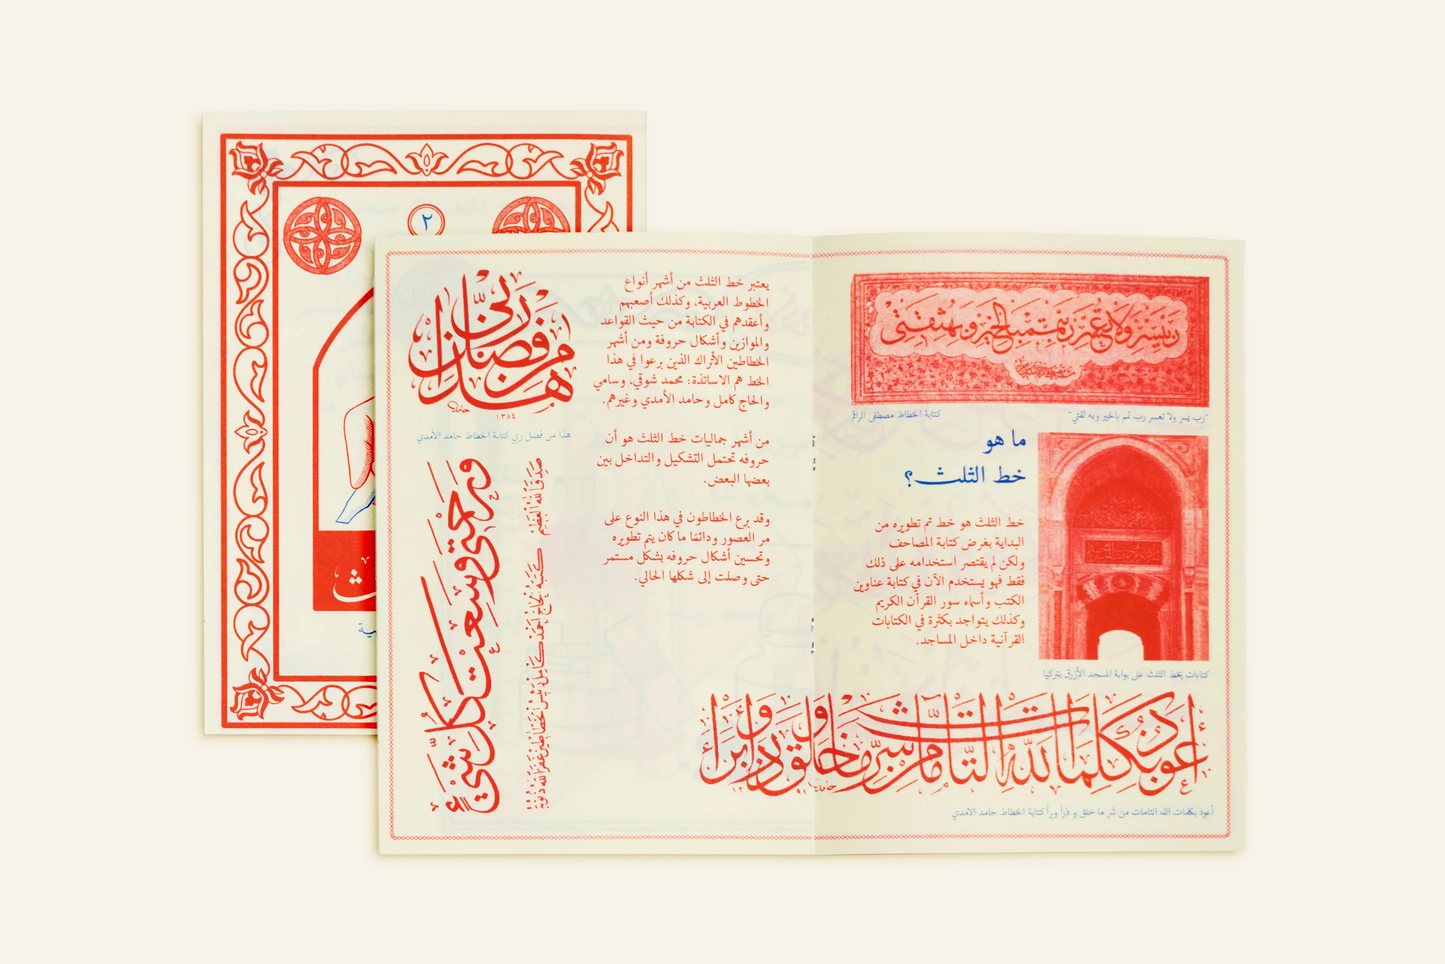 ٢
رب يسر ولا تعسر رب تمم بالخير وبه ثقتي
"رب يسر ولا تعسر رب تمم بالخير وبه ثقتي"
كتابة الخطاط مصطفى الراقم
ما هو
خط الثلث؟
خط الثلث هو خط تم تطويره من
البداية بغرض كتابة المصاحف
ولكن لم يقتصر استخدامه على ذلك
فقط فهو يستخدم الآن في كتابة عناوين
الكتب وأسماء سور القرآن الكريم
وكذلك يتواجد بكثرة في الكتابات
القرآنية داخل المساجد.
كتابات بخط الثلث على بوابة المسجد الأزرق بتركيا
أعوذ بكلمات الله التامات من شر ما خلق وذرأ وبرأ
أعوذ بكلمات الله التامات من شر ما خلق و ذرأ وبرأ كتابة الخطاط حامد الامدي
يعتبر خط الثلث من أشهر أنواع
الخطوط العربية، وكذلك أصعبهم
وأعقدهم في الكتابة من حيث القواعد
والموازين وأشكال حروفة ومن أشهر
الخطاطين الأتراك الذين برعوا في هذا
الخط هم الاساتذة: محمد شوقي، وسامي
والحاج كامل وحامد الأمدي وغيرهم.
من أشهر جماليات خط الثلث هو أن
حروفه تحتمل التشكيل والتداخل بين
بعضها البعض.
وقد برع الخطاطون في هذا النوع على
مر العصور ودائمًا ما كان يتم تطويره
وتحسين أشكال حروفه بشكل مستمر
حتى وصلت إلى شكلها الحالي.
هذا من فضل ربي
حامد ١٣٨٤
هذا من فضل ربي كتابة الخطاط حامد الأمدي
ورحمتي وسعت كل شيء
صدق الله العظيم
كتبه الحاج احمد كامل رئيس الخطاطين غفر الله ذنوبه